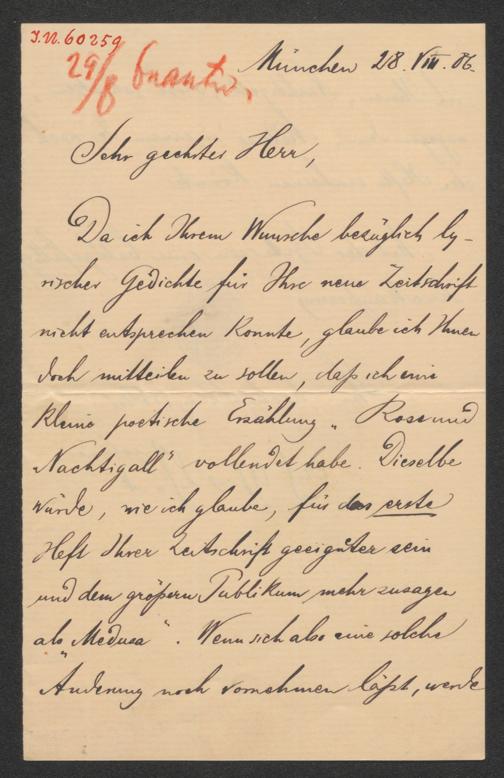 J.N. 60259
29/8
München 28. VIII. 06.
Sehr geehrter Herr,
Da ich Ihrem Wunsche bezüglich ly-
rischer Gedichte für Ihre neue Zeitschrift
nicht entsprechen konnte, glaube ich Ihnen
doch mitteilen zu sollen, daß ich eine
kleine poetische Erzählung „Rose und
Nachtigall" vollendet habe. Dieselbe
würde, wie ich glaube, für das erste
Heft Ihrer Zeitschrift geeigneter sein
und dem größern Publikum mehr zusagen
als „Medusa". Wenn sich also eine solche
Änderung noch vornehmen läßt, werde